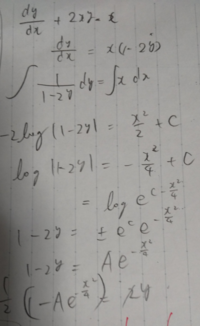 dy/dx + 2xy = x
dy/dx = x(1-2y)
∫ 1/(1-2y) dy = ∫ x dx
-2log|1-2y| = x²/2 + C
log|1-2y| = -x²/4 + C
= log e^(C-x²/4)
1-2y = ± e^c e^(-x²/4)
1-2y = Ae^(-x²/4)
1/2 (1-Ae^(-x²/4)) = y